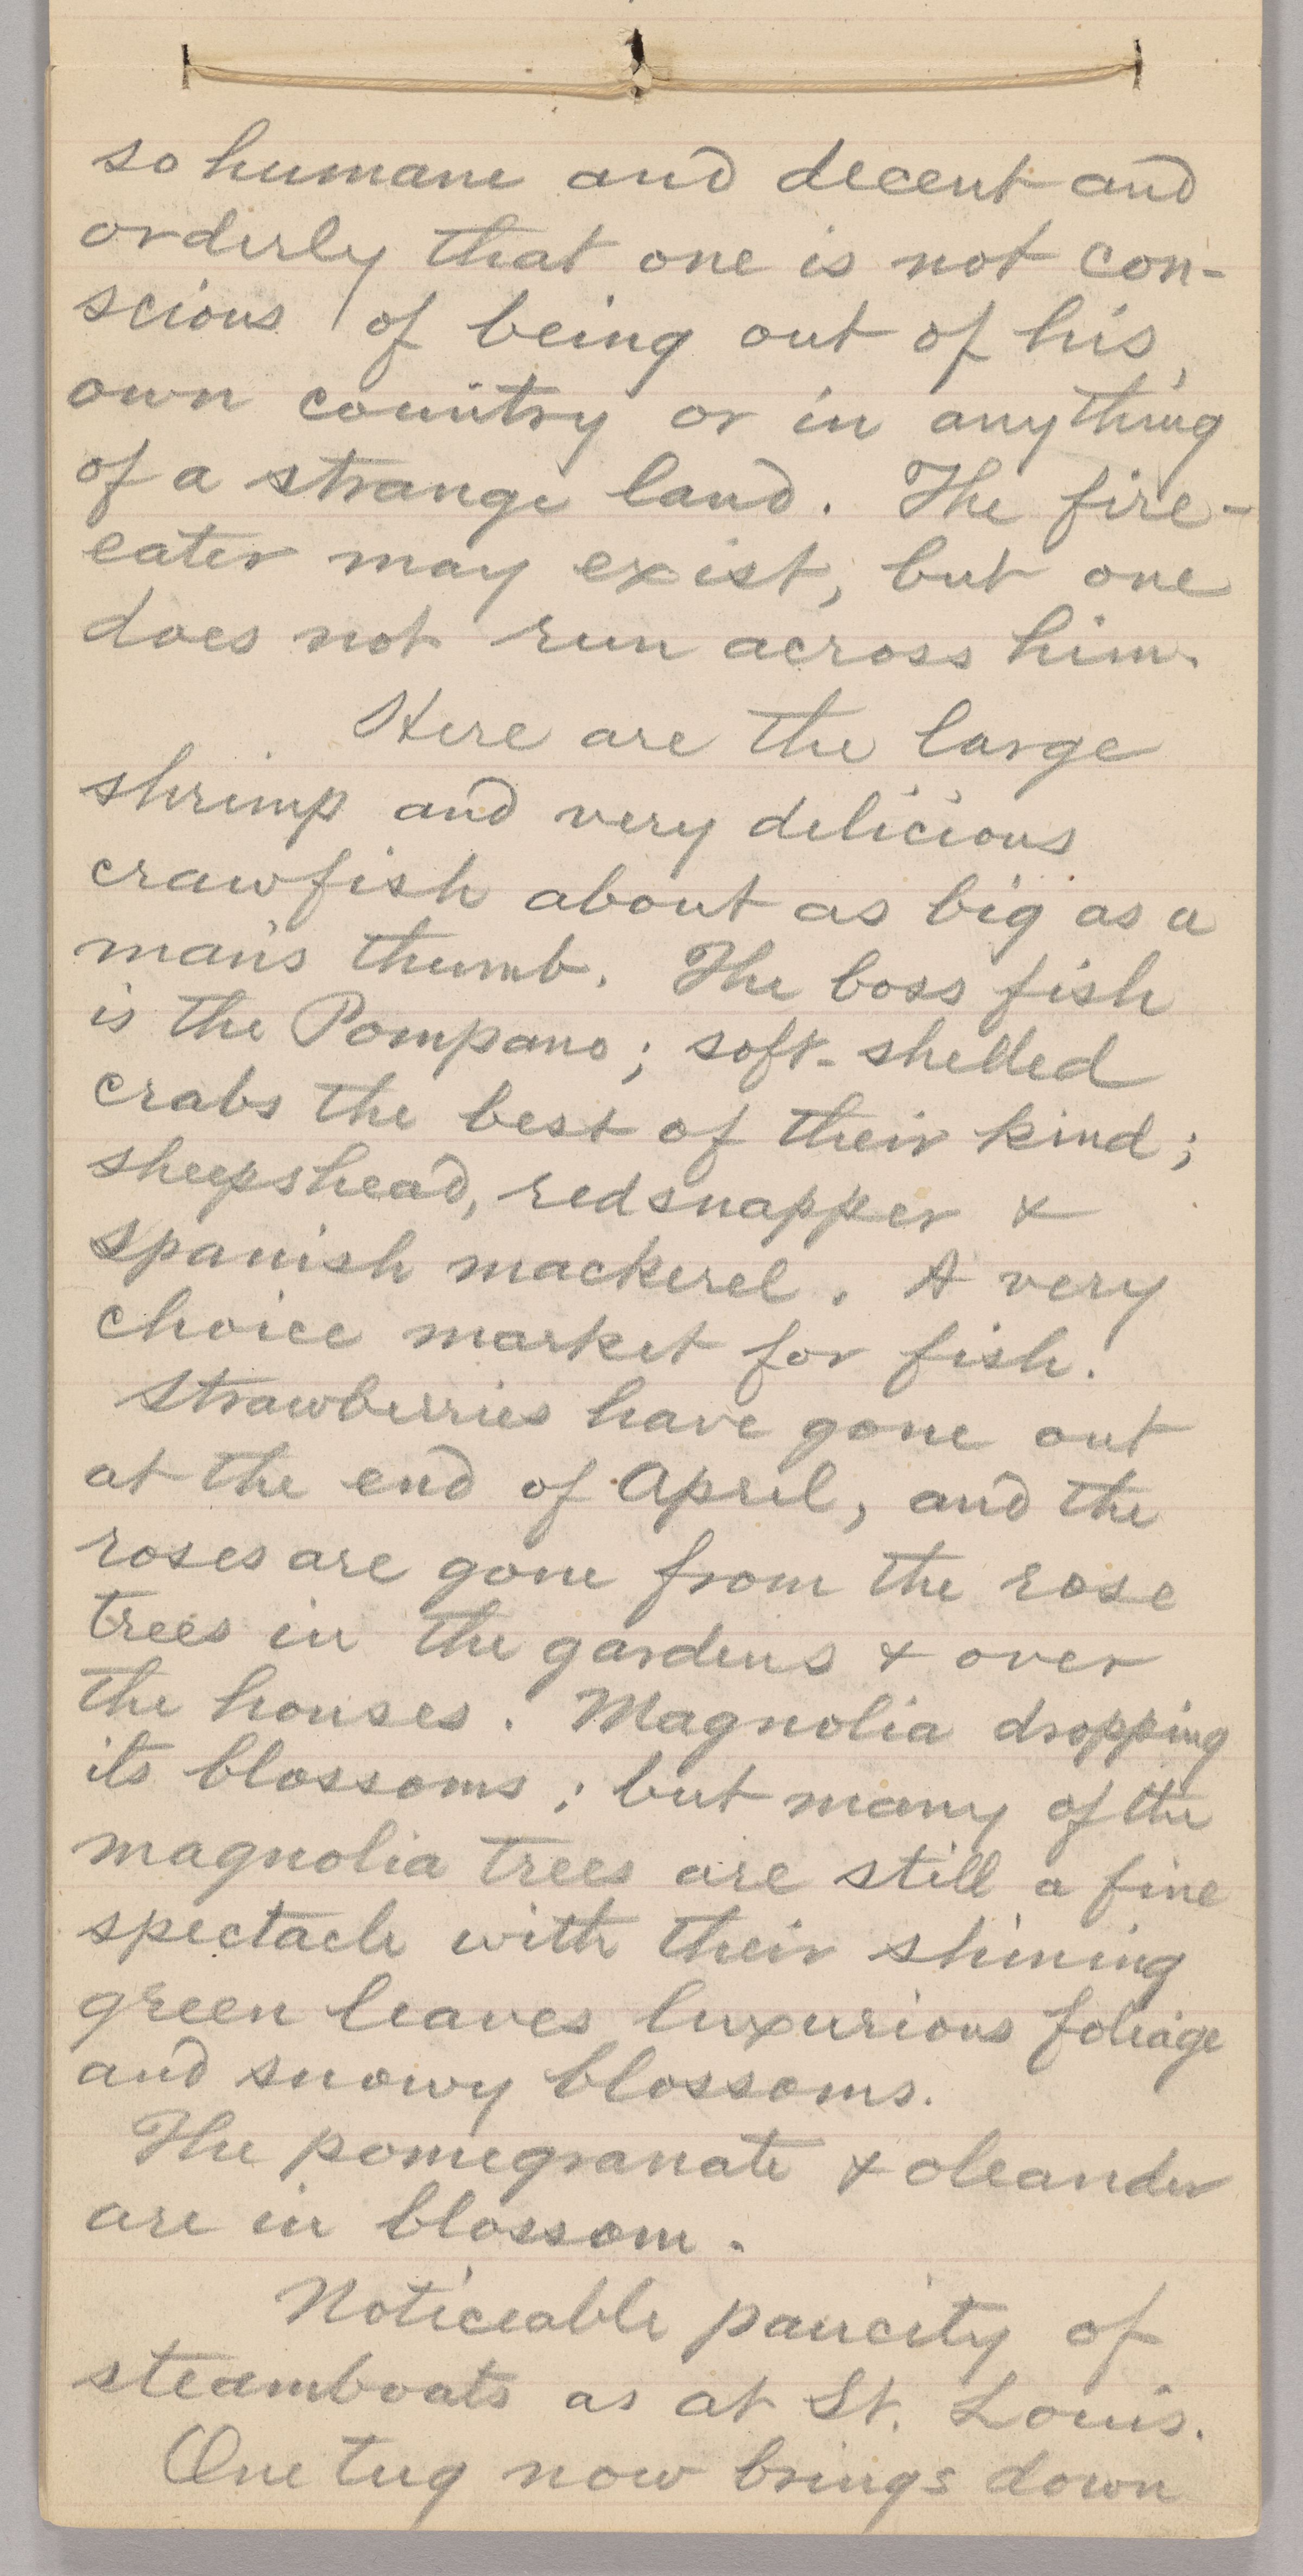 so humane and decent and
orderly that one is not con-
scious of being out of his
own country or in anything
of a strange land. The fire-
eater may exist, but one
does not run across him.
Here are the large
shrimp and very delicious
crawfish about as big as a
man's thumb. The boss fish
is the Pompano; soft-shelled
crabs the best of their kind;
sheepshead, redsnapper &
spanish mackerel. A very
choice market for fish.
Strawberries have gone out
at the end of April, and the
roses are gone from the rose
trees in the gardens & over
the houses. Magnolia dropping
its blossoms; but many of the
magnolia trees are still a fine
spectacle with their shining
green leaves luxurious foliage
and snowy blossoms.
The pomegranate & oleander
are in blossom.
Noticeable paucity of
steamboats as at St. Louis.
One tug now brings down